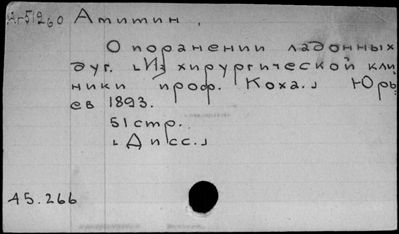 Аг51260 Атитин.
О поранении ладонных
дуг. [Из хирургической кли
ники проф. Коха.] Юрь
ев 1893.
51 стр.
[Дисс.]
А5.266